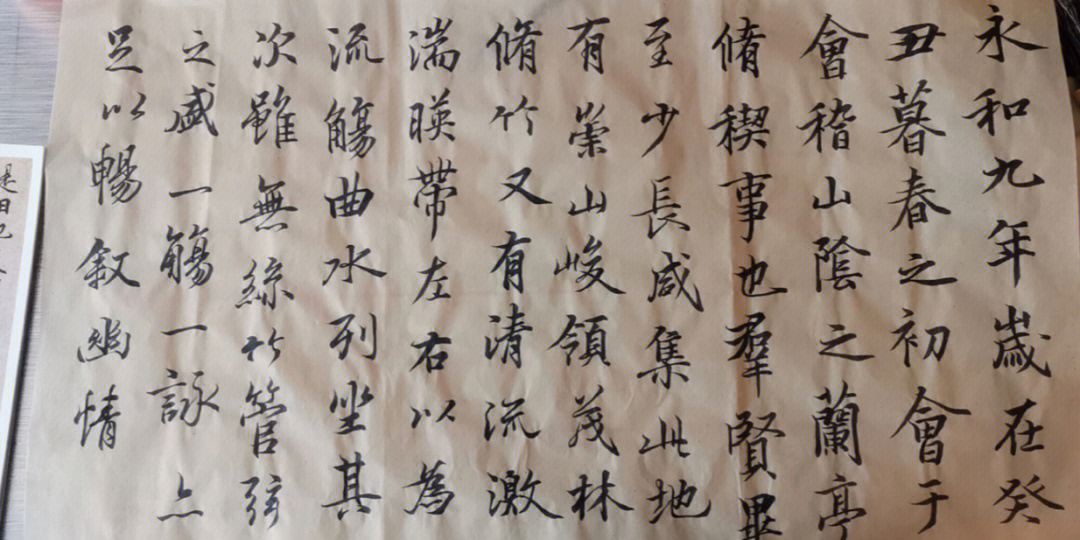 永和九年歲在癸
丑暮春之初會于
會稽山陰之蘭亭
脩稧事也羣賢畢
至少長咸集此地
有崇山峻領茂林
脩竹又有清流激
湍暎帶左右以為
流觴曲水列坐其
次雖無絲竹管弦
之盛一觴一詠亦
足以暢叙幽情
是日也